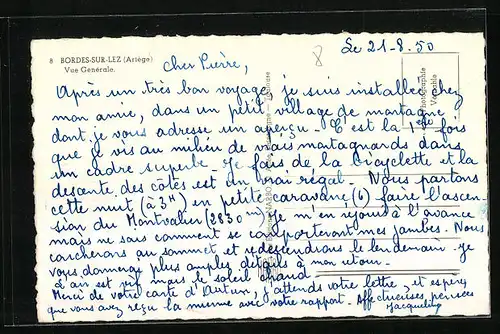 8 BORDES-SUR-LEZ (Ariège)
Vue Générale.
8
Le 21-8.50
Cher Pierre,
Après un très bon voyage, je suis installée chez
mon amie, dans un petit village de montagne
dont je vous adresse un aperçu - C'est la 1ère fois
que je vis au milieu de vrais montagnards dans
un cadre superbe - Je fais de la bicyclette et la
desante des côtes est un vrai régal - Nous partons
cette nuit (à 3H) en petite caravane (6) faire l'ascen-
sion du Montvalier (2830 m) Je m'en réjouis à l'avance
mais ne sais comment se comporteront mes jambes. Nous
coucherons au sommet et redescendrons le lendemain - Je
vous donnerai plus amples détails à mon retour -
L'air est vif mais le soleil chaud
Merci de votre carte d' j'attends votre lettre, et espère
que vous avez reçu la mienne avec votre rapport - Affectueuses pensées
Jacqueline
Photographie
Véritable